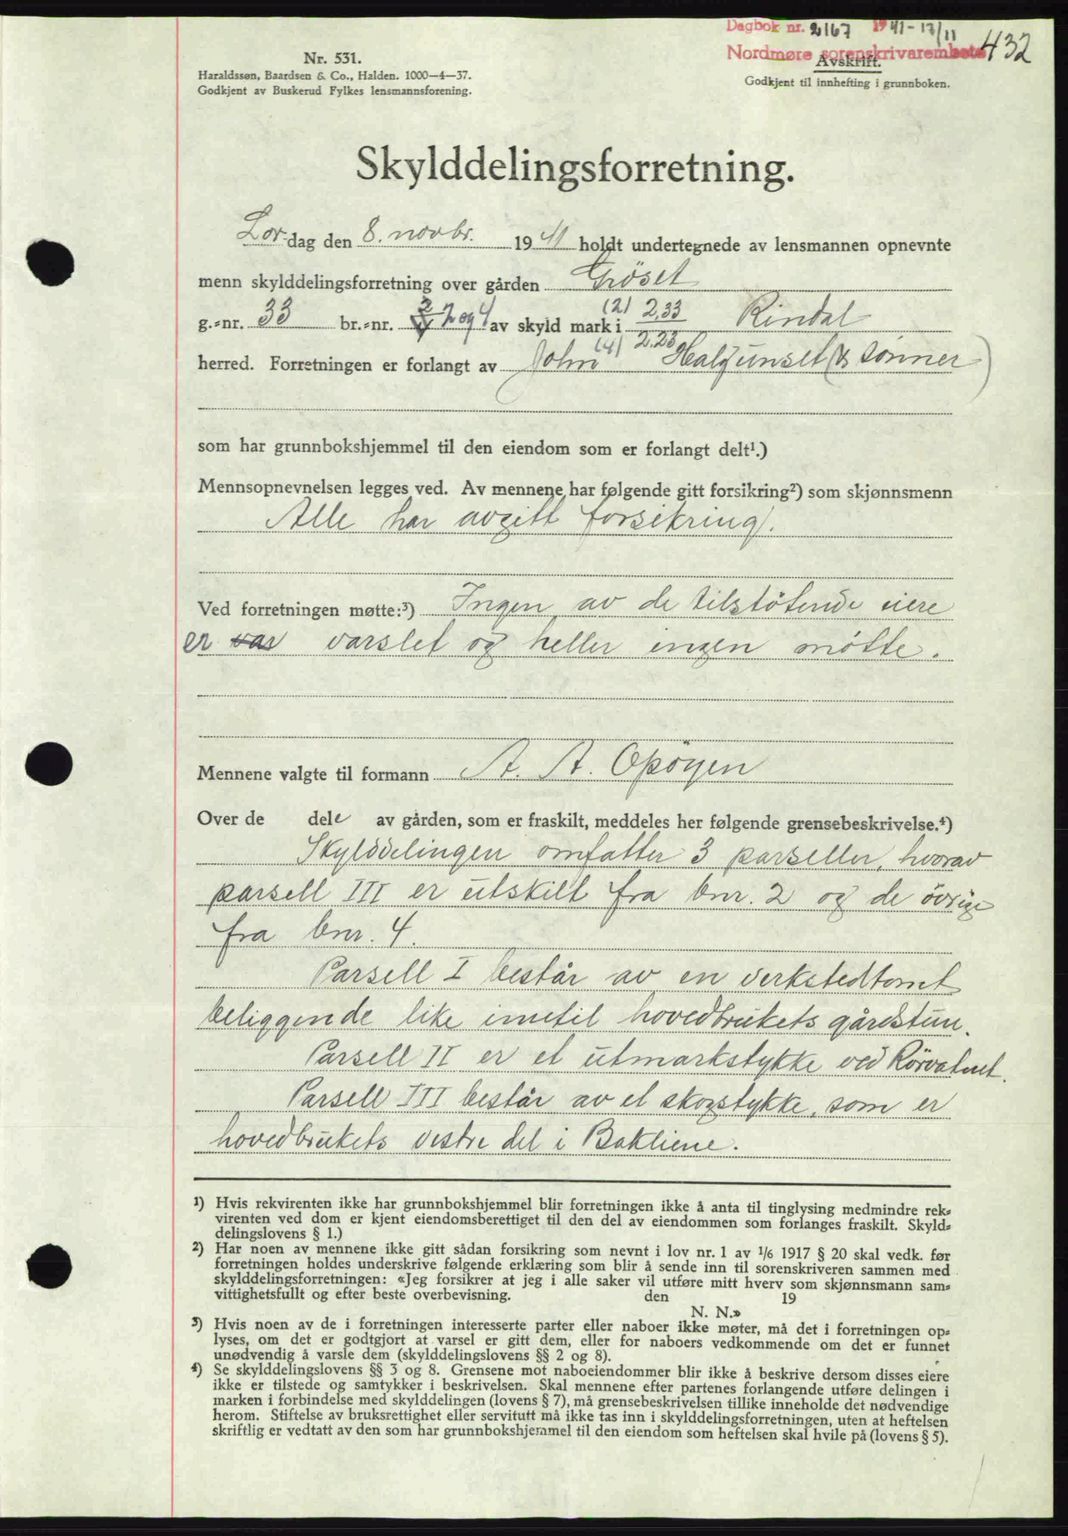 Dagbok nr. 2167 1941-17/11
Nordmøre sorenskrivarembete 432
Nr. 531.
Haraldssøn, Baardsen & Co., Halden. 1000—4—37.
Godkjent av Buskerud Fylkes lensmannsforening.
Avskrift.
Godkjent til innhefting i grunnboken.
Skylddelingsforretning.
Lør-dag den 8. novbr. 1941 holdt undertegnede av lensmannen opnevnte
menn skylddelingsforretning over gården Grøset
g.-nr. 33 br.-nr. 2 og 4 av skyld mark i (2) 2,33 (4) 2.23 Rindal
herred. Forretningen er forlangt av John Halgunset (& sønner)
som har grunnbokshjemmel til den eiendom som er forlangt delt¹.)
Mennsopnevnelsen legges ved. Av mennene har følgende gitt forsikring²) som skjønnsmenn
Alle har avgitt forsikring.
Ved forretningen møtte:³) Ingen av de tilstøtende eiere
er var varslet og heller ingen møtte.
Mennene valgte til formann A. A. Opöyen
Over de dele av gården, som er fraskilt, meddeles her følgende grensebeskrivelse.⁴)
Skylddelingen omfatter 3 parseller, hvorav
parsell III er utskilt fra bnr. 2 og de øvrige
fra bnr. 4.
Parsell I består av en verkstedtomt
beliggende like inntil hovedbrukets gårdstun.
Parsell II er et utmarkstykke ved Rörvatnet.
Parsell III består av et skogstykke, som er
hovedbrukets vestre del i Bakliene.
¹) Hvis rekvirenten ikke har grunnbokshjemmel blir forretningen ikke å anta til tinglysing medmindre rek-
virenten ved dom er kjent eiendomsberettiget til den del av eiendommen som forlanges fraskilt. Skyld-
delingslovens § 1.)
²) Har noen av mennene ikke gitt sådan forsikring som nevnt i lov nr. 1 av 1/6 1917 § 20 skal vedk. før
forretningen holdes underskrive følgende erklæring som blir å sende inn til sorenskriveren sammen med
skylddelingsforretningen: «Jeg forsikrer at jeg i alle saker vil utføre mitt hverv som skjønnsmann sam-
vittighetsfullt og efter beste overbevisning. den 19
N. N.»
³) Hvis noen av de i forretningen interesserte parter eller naboer ikke møter, må det i forretningen op-
lyses, om det er godtgjort at varsel er gitt dem, eller for naboers vedkommende om det er funnet
unødvendig å varsle dem (skylddelingslovens §§ 2 og 8).
⁴) Se skylddelingslovens §§ 3 og 8. Grensene mot naboeiendommer blir ikke å beskrive dersom disses eiere
ikke er tilstede og samtykker i beskrivelsen. Skal mennene efter partenes forlangende utføre delingen i
marken i forbindelse med skylddelingen (lovens § 7), må grensebeskrivelsen tillike inneholde det nødvendige
herom. Stiftelse av bruksrettighet eller servitutt må ikke tas inn i skylddelingsforretningen, uten at heftelsen
skriftlig er vedtatt av den som har grunnbokshjemmel til den eiendom som heftelsen skal hvile på (lovens § 5).